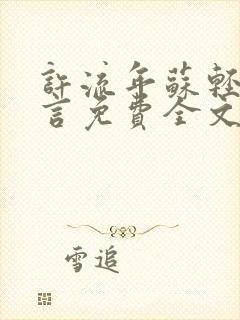 許流年蘇輕
言免費全文
雪追